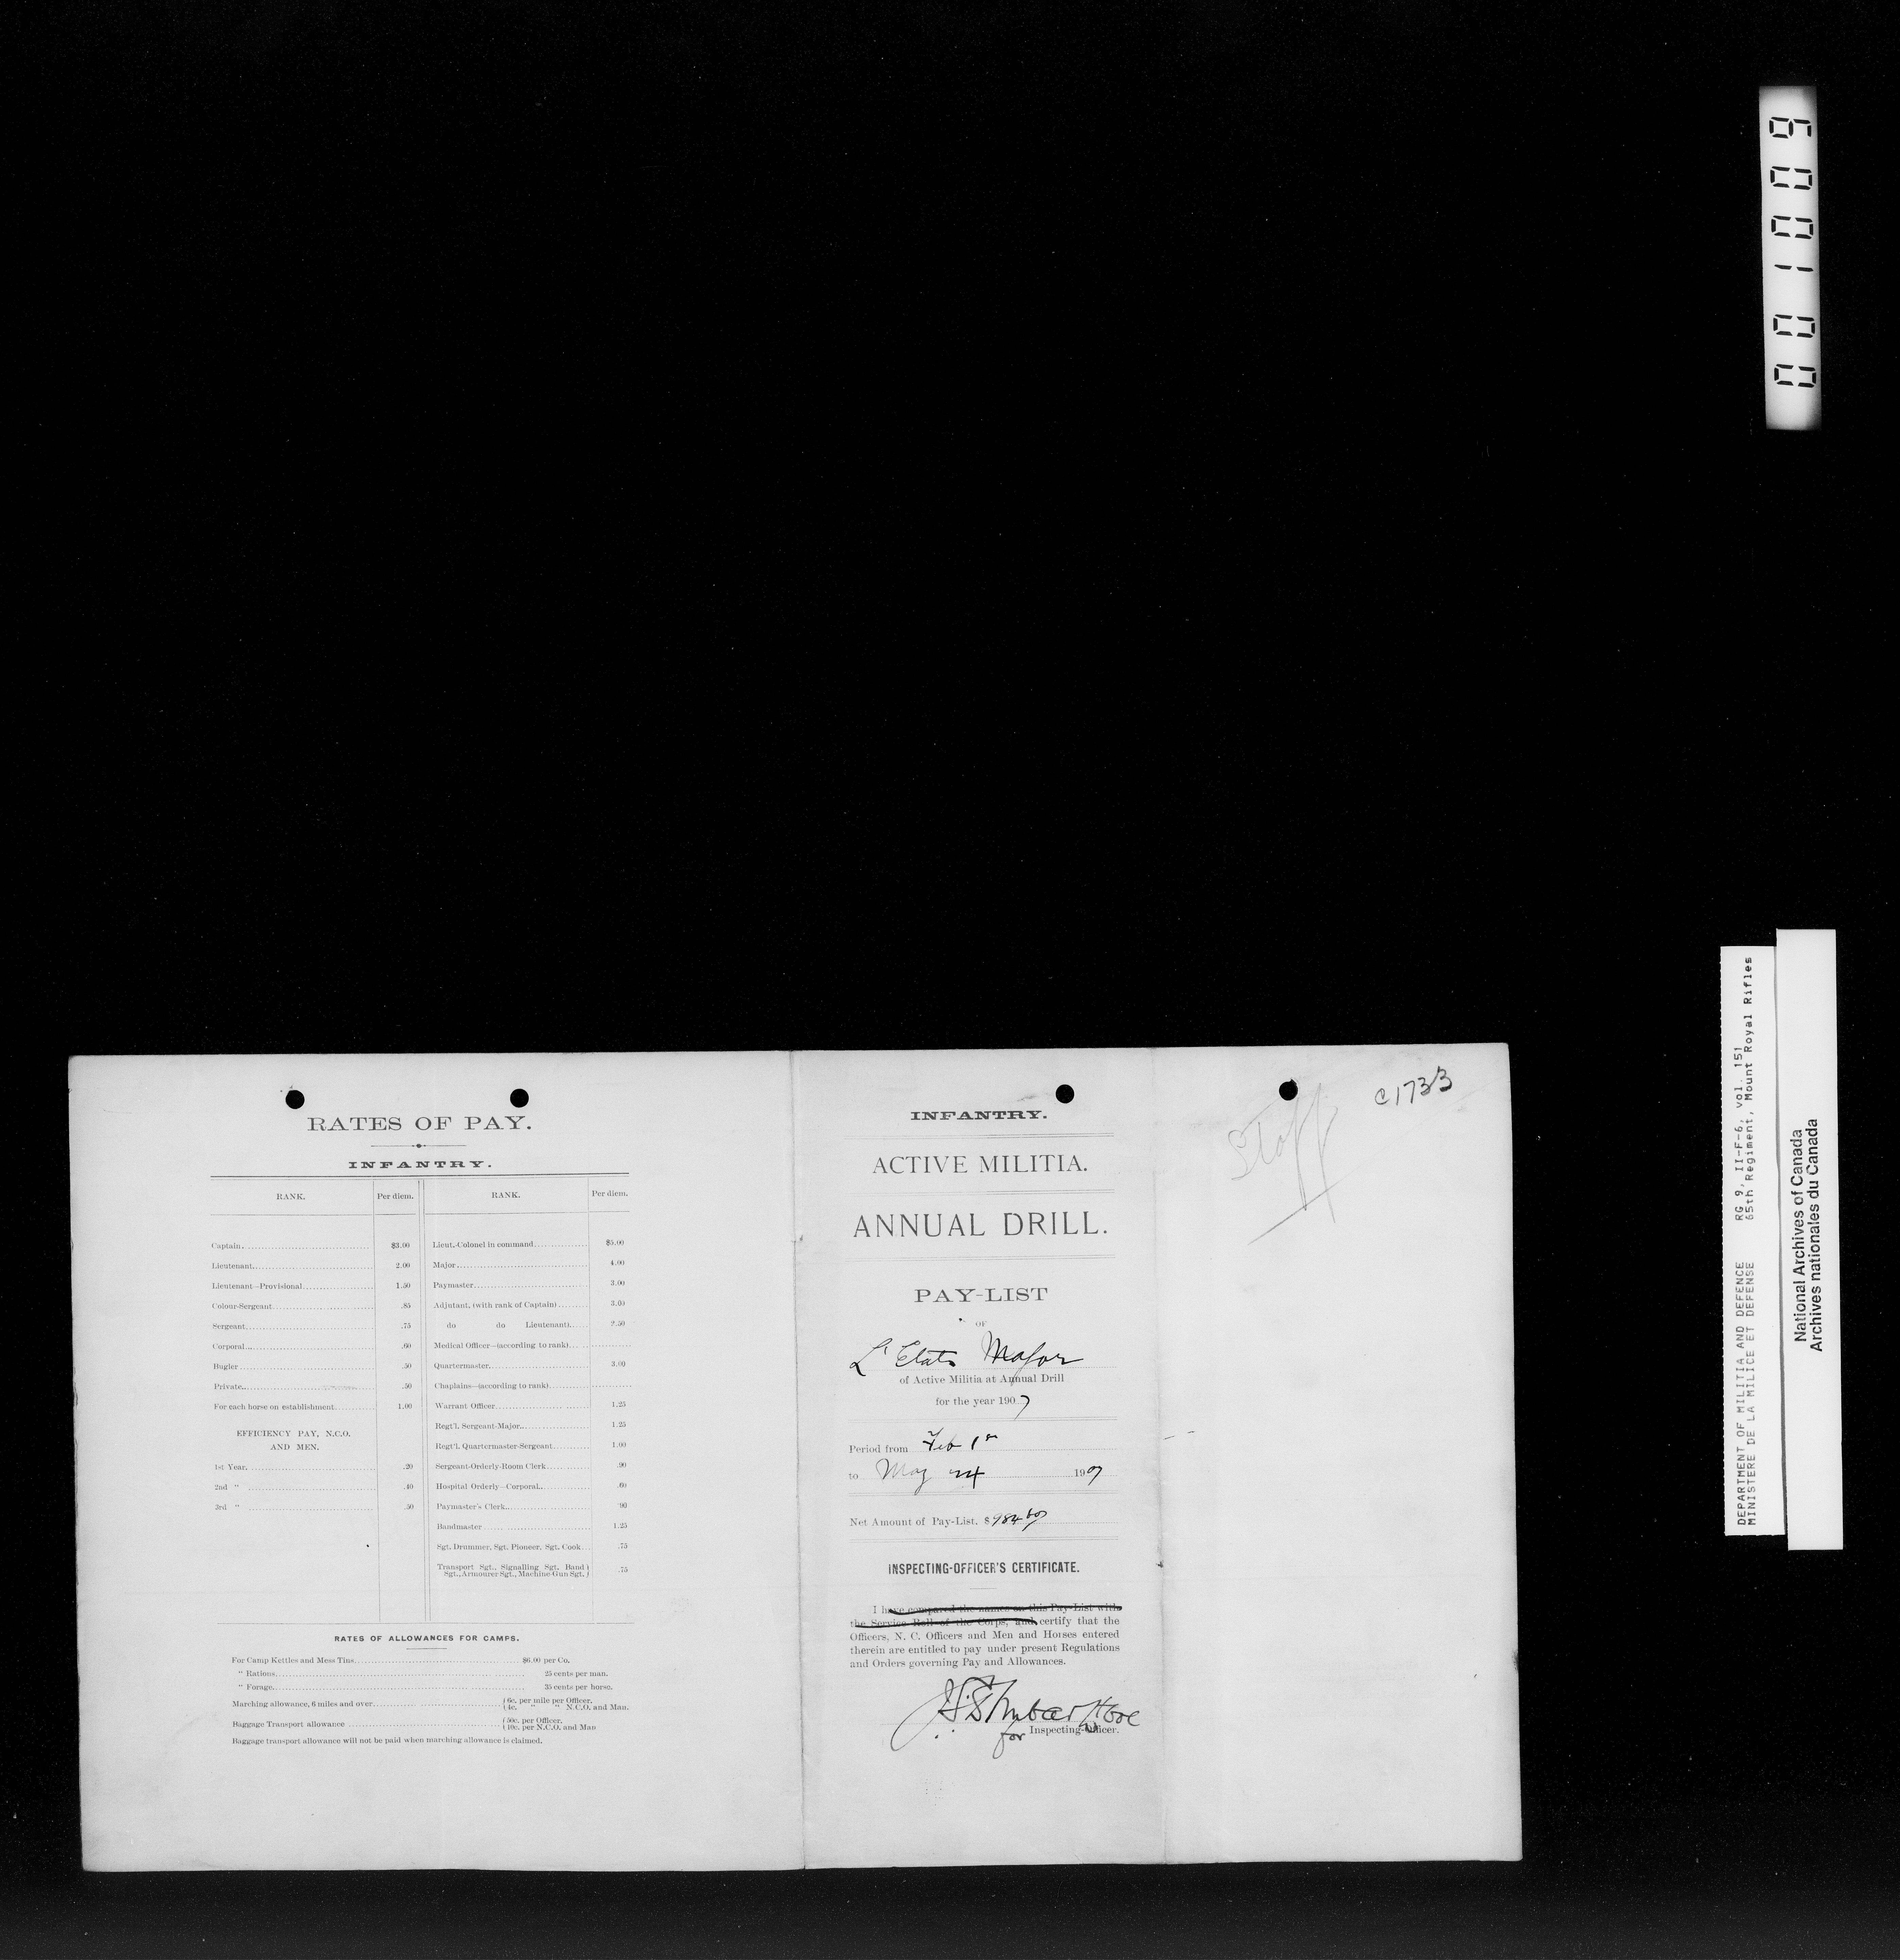 RATES OF PAY.
INFANTRY.
RANK. Per diem. RANK. Per diem.
Captain. $3.00 Lieut.-Colonel in command $5.00
Lieutenant 2.00 Major 4.00
Lieutenant—Provisional 1.50 Paymaster 3.00
Colour-Sergeant .85 Adjutant, (with rank of Captain) 3.00
Sergeant .75 do do Lieutenant) 2.50
Corporal .60 Medical Officer—(according to rank)
Bugler .50 Quartermaster 3.00
Private .50 Chaplains—(according to rank)
For each horse on establishment 1.00 Warrant Officer 1.25
Regt'l. Sergeant-Major 1.25
EFFICIENCY PAY, N.C.O.
AND MEN.
Regt'l. Quartermaster-Sergeant 1.00
1st Year, .20 Sergeant-Orderly-Room Clerk .90
2nd " .40 Hospital Orderly—Corporal .60
3rd " .50 Paymaster's Clerk .90
Bandmaster 1.25
Sgt. Drummer, Sgt. Pioneer, Sgt. Cook .75
Transport Sgt., Signalling Sgt. Band
Sgt., Armourer Sgt., Machine-Gun Sgt. .75
RATES OF ALLOWANCES FOR CAMPS.
For Camp Kettles and Mess Tins $6.00 per Co.
" Rations 25 cents per man.
" Forage 35 cents per horse.
Marching allowance, 6 miles and over { 6c. per mile per Officer.
{ 4c. " " N.C.O. and Man.
Baggage Transport allowance { 50c. per Officer.
{ 10c. per N.C.O. and Man
Baggage transport allowance will not be paid when marching allowance is claimed.
INFANTRY.
ACTIVE MILITIA.
ANNUAL DRILL.
PAY-LIST
OF
L'Etat Major
of Active Militia at Annual Drill
for the year 1907
Period from Feb 1st
to May 24 1907
Net Amount of Pay-List, $984
INSPECTING-OFFICER'S CERTIFICATE.
I have compared the names on this Pay-List with
the Service Roll of the Corps, and certify that the
Officers, N. C. Officers and Men and Horses entered
therein are entitled to pay under present Regulations
and Orders governing Pay and Allowances.
for Inspecting-Officer.
Staff
C1733
001009
DEPARTMENT OF MILITIA AND DEFENCE RG 9, II-F-6, vol. 151
MINISTERE DE LA MILICE ET DEFENSE 65th Regiment, Mount Royal Rifles
National Archives of Canada
Archives nationales du Canada